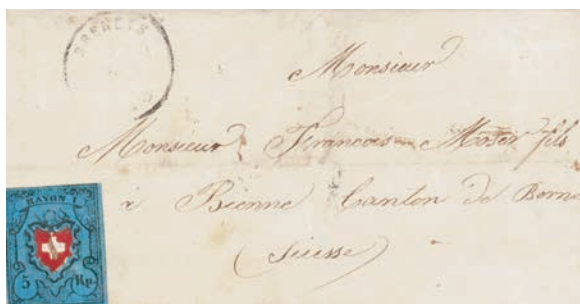 BRENETS
Monsieur
Monsieur François Moser fils
à Bienne Canton de Berne
(Suisse)
RAYON I
5 Rp.